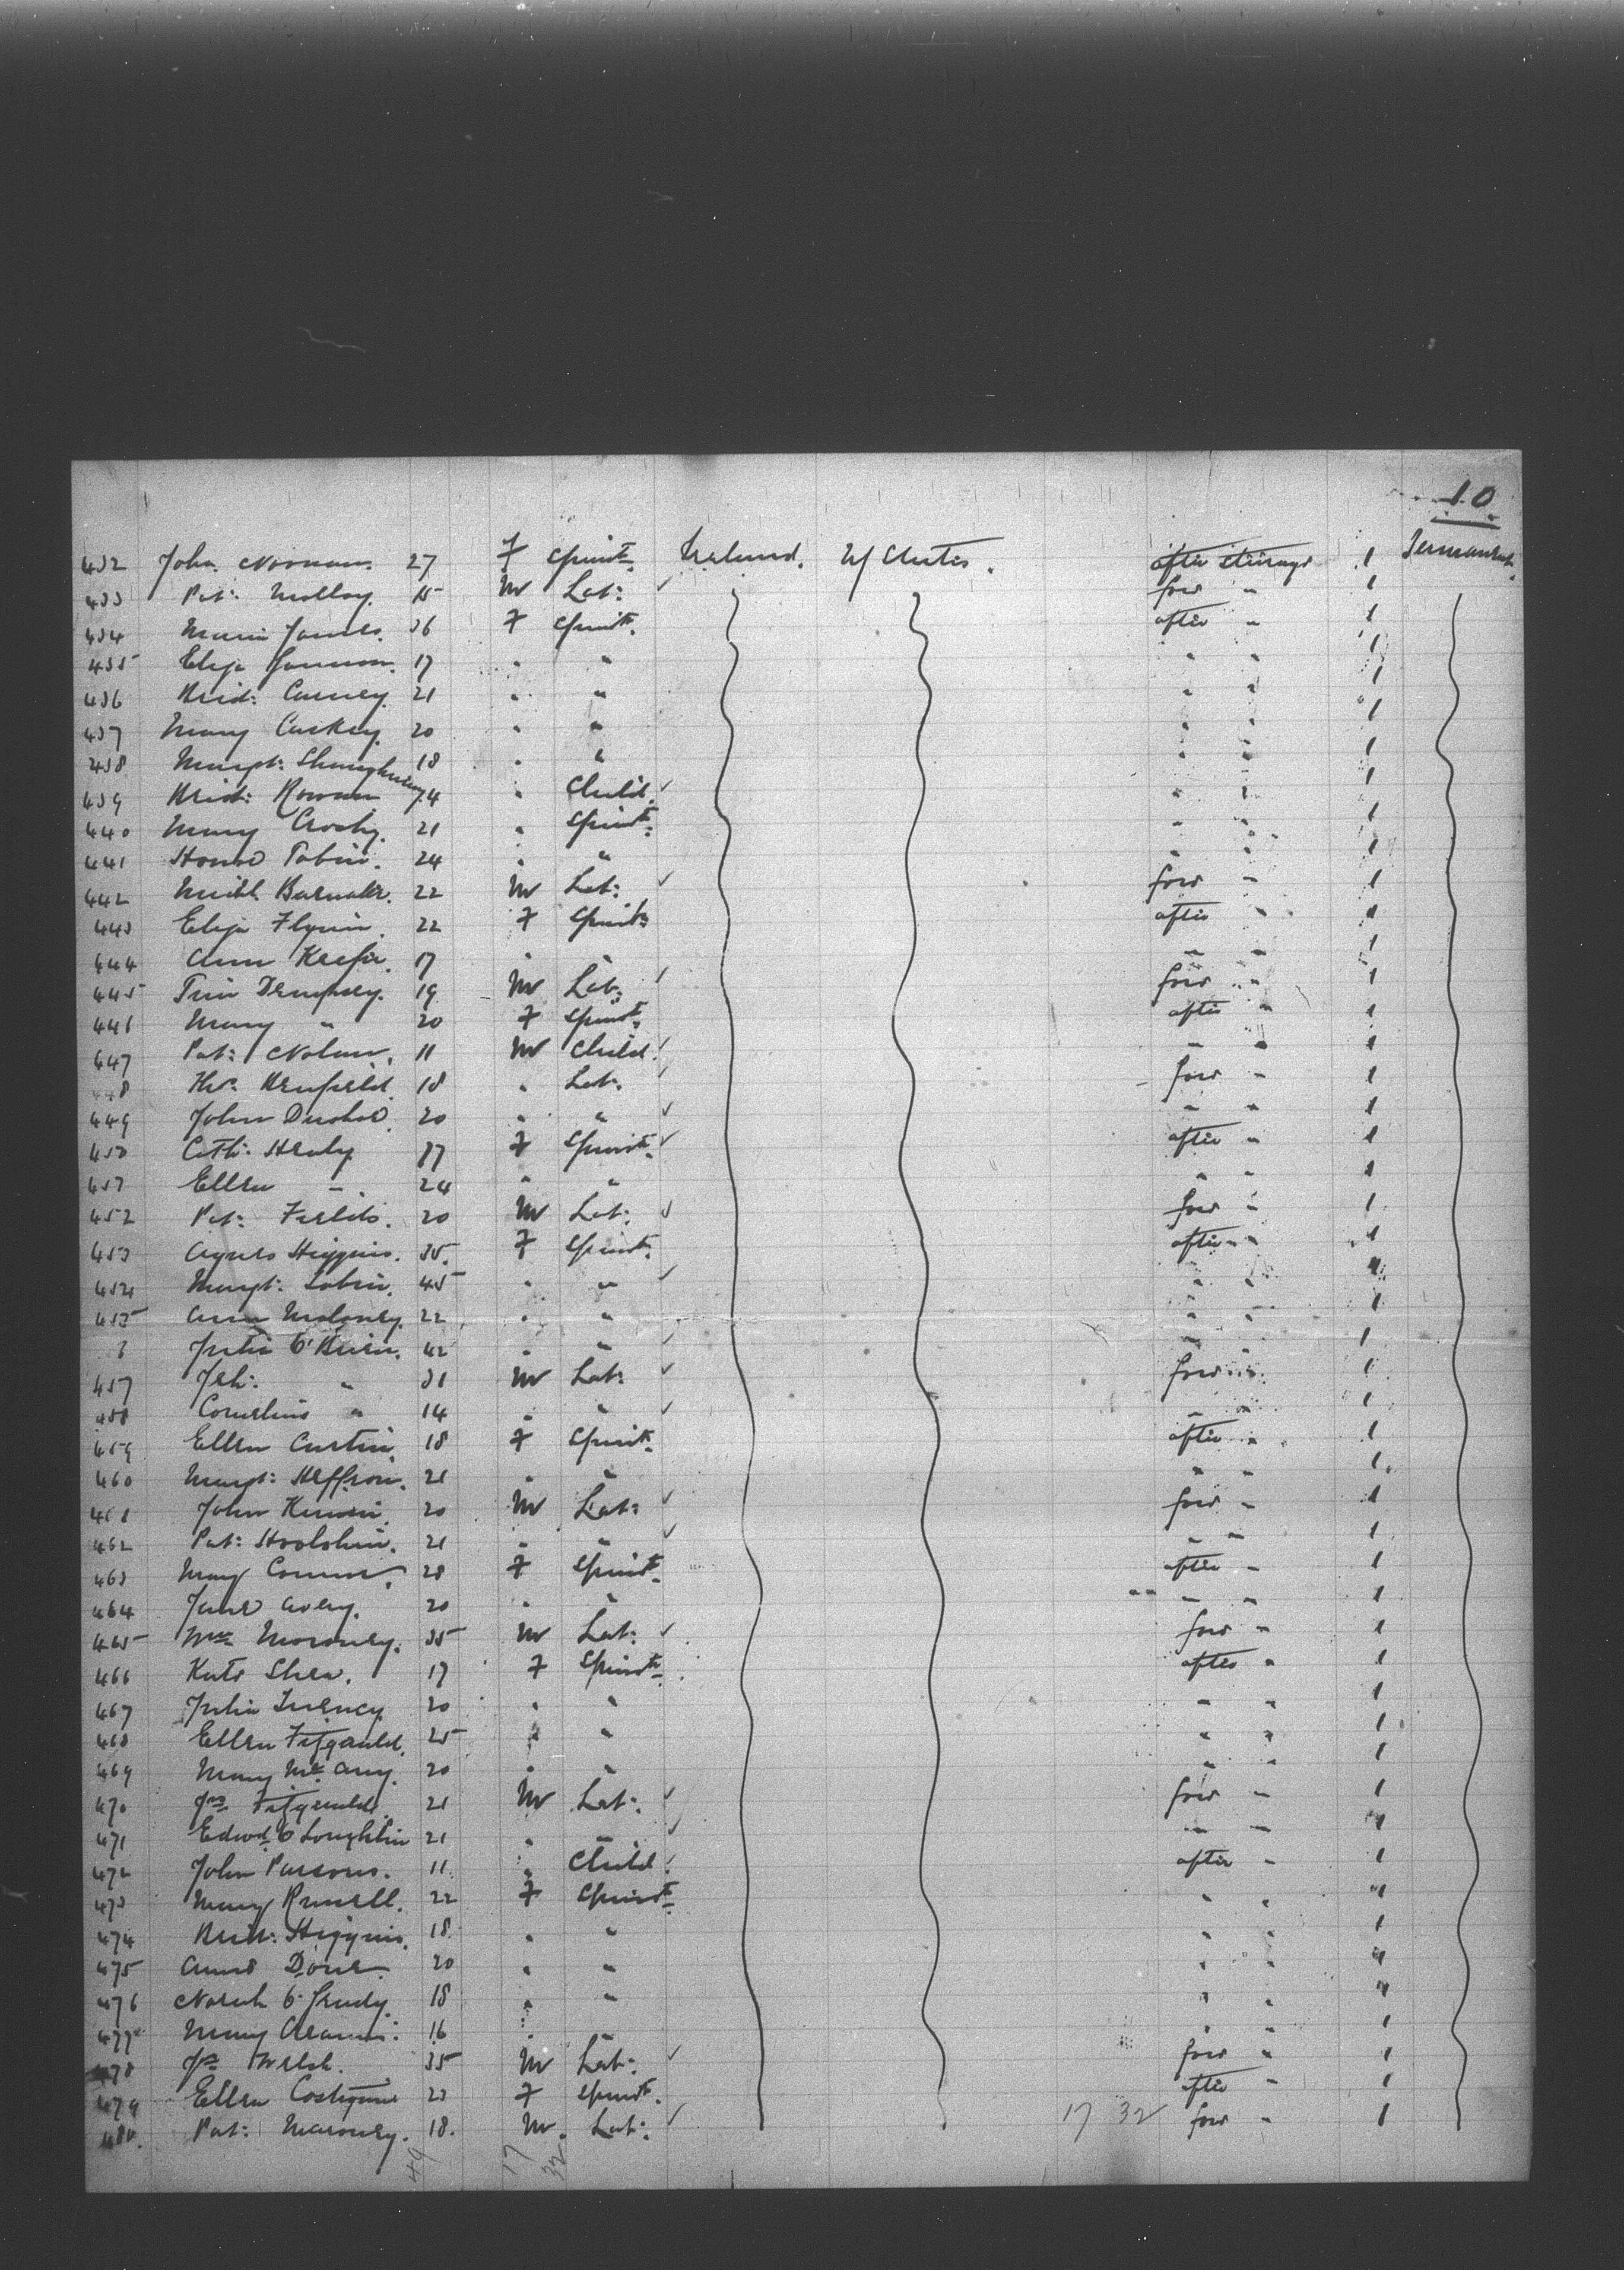 10
432 John Noonan. 27 F Spinst. Ireland. U/ States. after steerage 1 Permanent.
433 Pat: Molloy. 15 M Lab: ✓ forw " 1
434 Maria James. 36 F Spinst. after " 1
435 Eliza Gannon. 17 " " " " 1
436 Brid: Carney. 21 " " " " 1
437 Mary Caskey. 20 " " " " 1
438 Margt: Shaughnessy 18 " " " " 1
439 Brid: Rowan 74 " Child. ✓ " " 1
440 Mary Crosby. 21 " Spinst. " " 1
441 Honor Tobin. 24 " " " " 1
442 Mich 22 M Lab: ✓ forw " 1
443 Eliza Flynn. 22 F Spinst: after " 1
444 Ann Keefe. 17 " " " " 1
445 Tim Dempsey. 19 M Lab: ✓ forw " 1
446 Mary " 20 F Spinst. after " 1
447 Pat: Nolan. 11 M Child. ✓ " " 1
448 Ths. Benfield. 18 " Lab. ✓ forw " 1
449 John 20 " " ✓ " " 1
450 Cath: Healy. 17 F Spinst. ✓ after " 1
451 Ellen " 24 " " " " 1
452 Pat: Fields. 20 M Lab: ✓ forw " 1
453 Agnes Higgins. 35. F Spinst. after " 1
454 Margt: Tobin. 45 " " ✓ " " 1
455 Ann Moloney. 22 " " " " 1
Julia O'Brien. 42 " " ✓ " " 1
457 " 31 M Lab: ✓ forw " 1
458 Cornelius " 14 " " ✓ " " 1
459 Ellen Curtin. 18 F Spinst. after " 1
460 Margt: Heffron. 21 " " " " 1
461 John 20 M Lab: ✓ forw " 1
462 Pat: Hoolohin. 21 " " ✓ " " 1
463 Mary Connor. 28 F Spinst. after " 1
464 Jane Avery. 20 " " " " 1
465 Wm Moroney. 35 M Lab: ✓ forw " 1
466 Kate Shea. 17 F Spinst. after " 1
467 Julia 20 " " " " 1
468 Ellen Fitzgerald. 25 " " " " 1
469 Mary Mc 20 " " " " 1
470 Jno Fitzgerald. 21 M Lab: ✓ forw " 1
471 Edwd O'Loughlin 21 " " ✓ " " 1
472 John Parsons. 11. " Child. ✓ after " 1
473 Mary Russell. 22 F Spinst. " " 1
474 Brid: Higgins. 18. " " " " 1
475 Anne 20 " " " " 1
476 Norah O'Grady. 18 " " " " 1
477 Mary 16 " " " " 1
478 Jas Welsh. 35 M Lab: ✓ forw " 1
479 Ellen Costigan 23 F Spinst. after " 1
480. Pat: Maroney. 18. M. Lab: ✓ 17 32 forw " 1
49 17 32